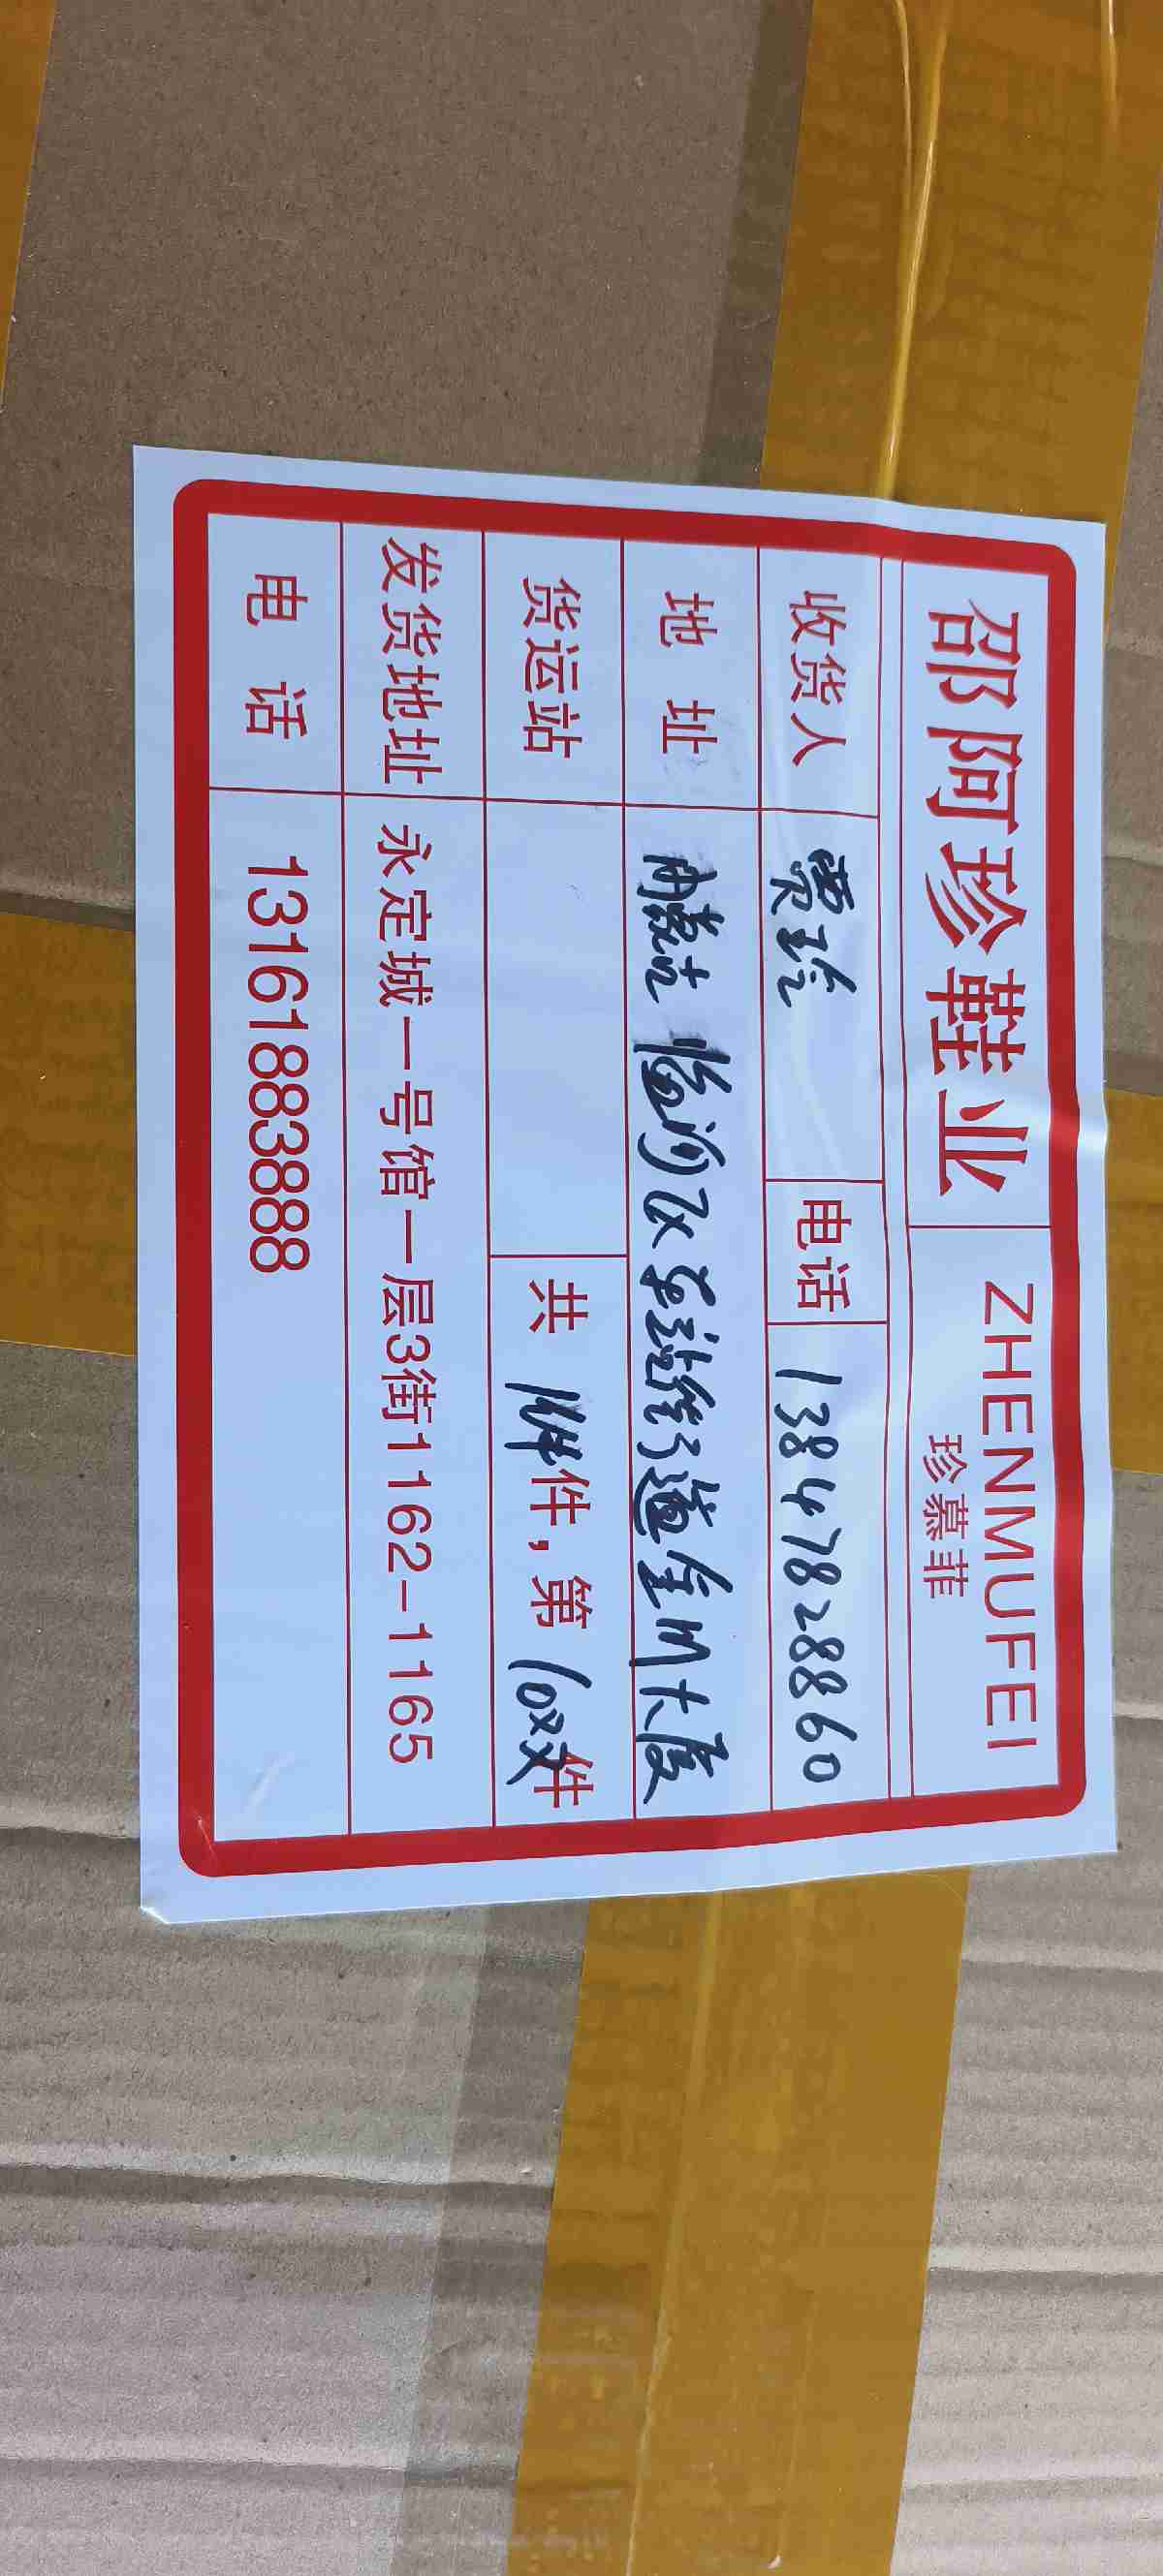 邵阿珍鞋业 ZHENMUFEI
珍慕菲
收货人 贾玲 电话 13847828860
地址 内蒙古 临河区 车站街道金川大厦
货运站 共 1件件，第 10双件
发货地址 永定城一号馆一层3街1162-1165
电话 13161883888